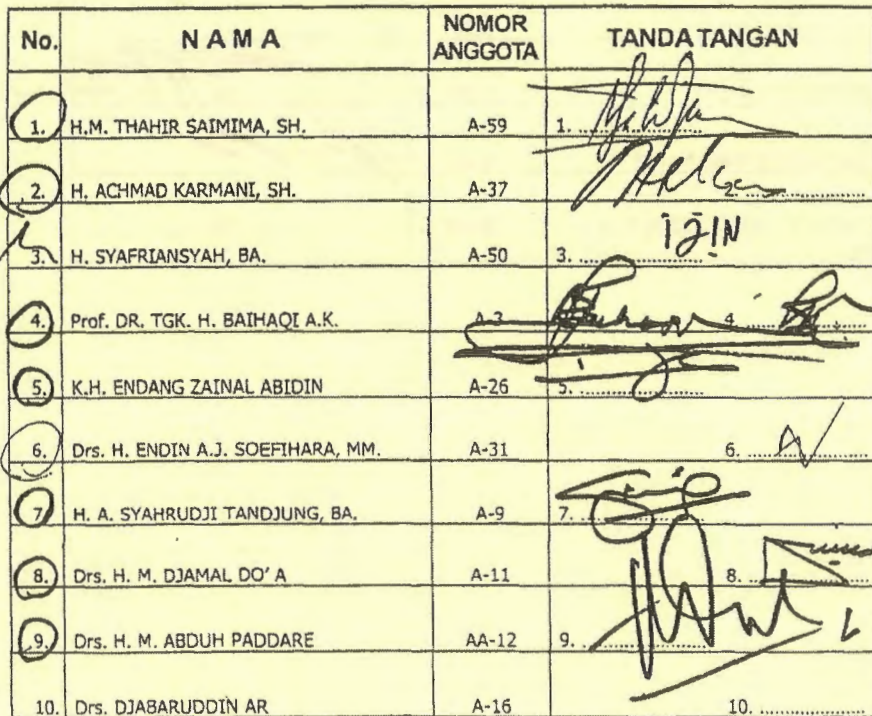 No. NAMA NOMOR ANGGOTA TANDA TANGAN
1. H.M. THAHIR SAIMIMA, SH. A-59 1. ....................
2. H. ACHMAD KARMANI, SH. A-37 2. ....................
3. H. SYAFRIANSYAH, BA. A-50 3. .................... IJIN
4. Prof. DR. TGK. H. BAIHAQI A.K. A-3 4. ....................
5. K.H. ENDANG ZAINAL ABIDIN A-26 5. ....................
6. Drs. H. ENDIN A.J. SOEFIHARA, MM. A-31 6. ....................
7. H. A. SYAHRUDJI TANDJUNG, BA. A-9 7. ....................
8. Drs. H. M. DJAMAL DO'A A-11 8. ....................
9. Drs. H. M. ABDUH PADDARE AA-12 9. ....................
10. Drs. DJABARUDDIN AR A-16 10. ....................